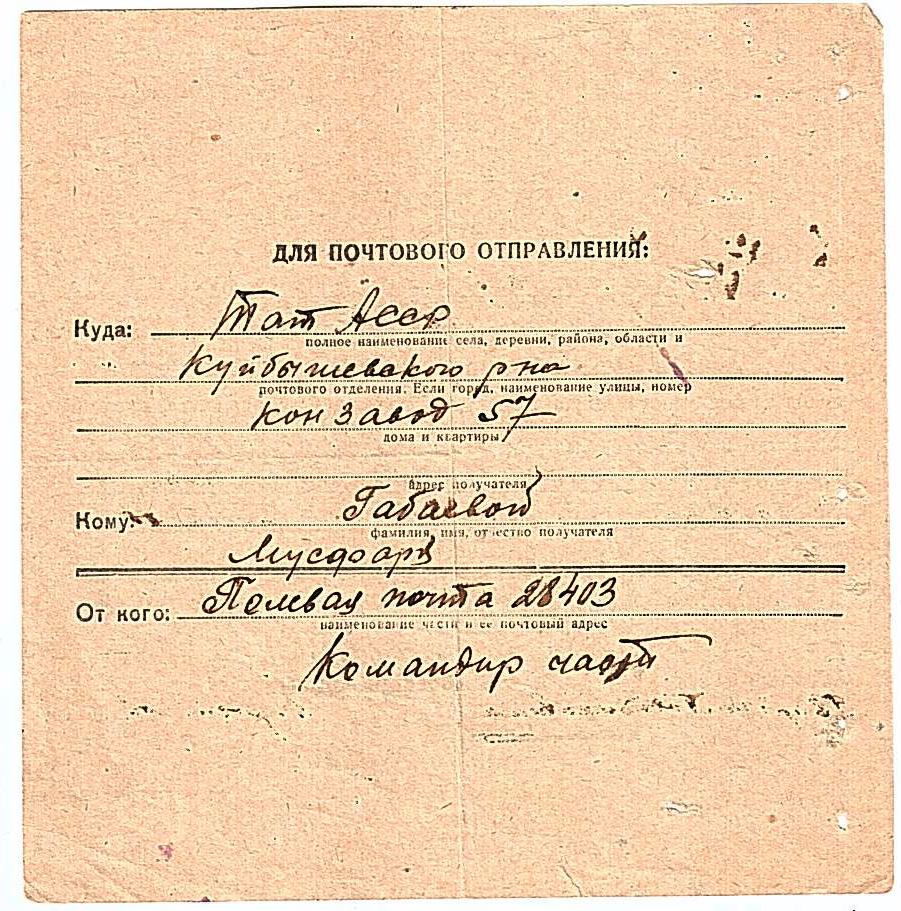 ДЛЯ ПОЧТОВОГО ОТПРАВЛЕНИЯ:
Куда: Тат Асср
полное наименование села, деревни, района, области и
Куйбышевского рна
почтового отделения. Если город, наименование улицы, номер
кон завод 57
дома и квартиры
адрес получателя
Кому: Габаевой
фамилия, имя, отчество получателя
От кого: Полевая почта 28403
наименование части и ее почтовый адрес
Командир части